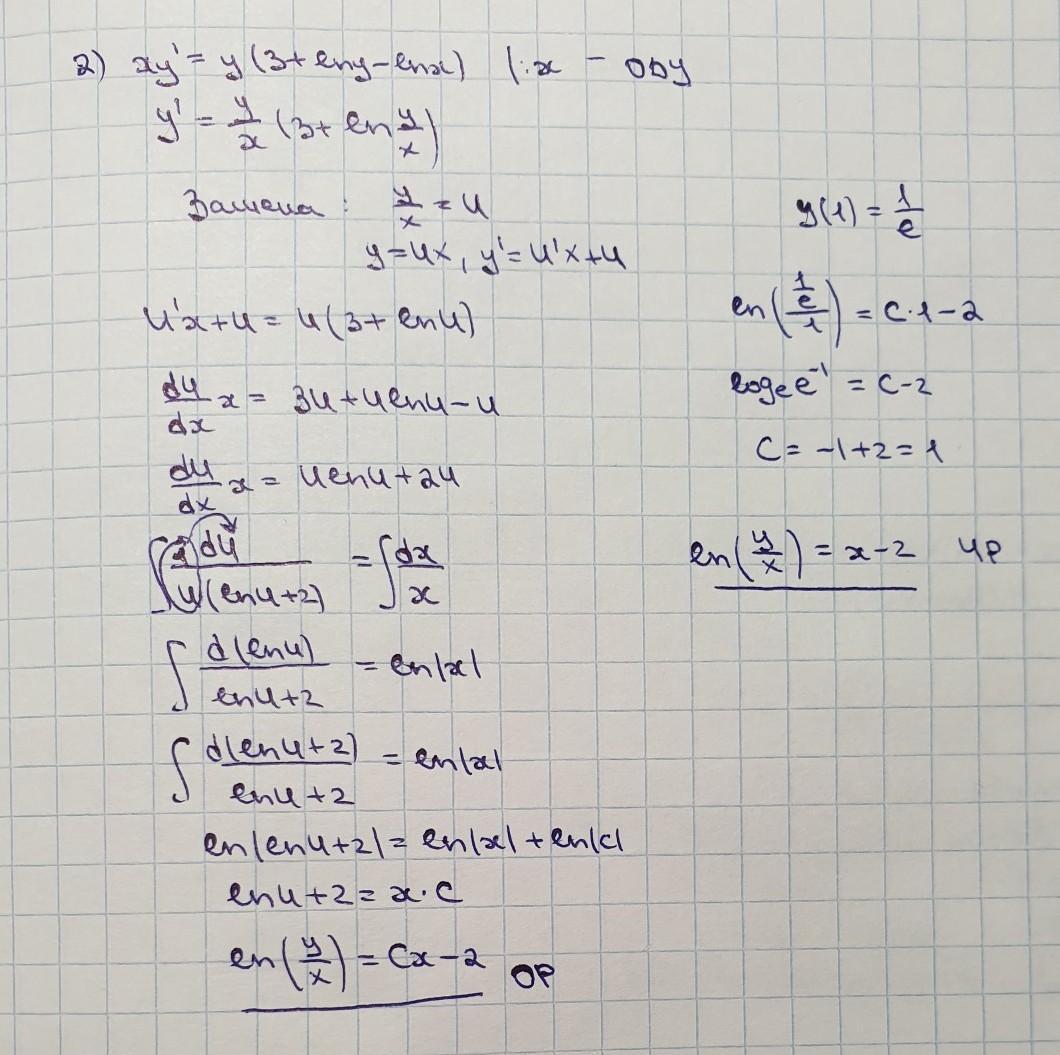 2) xy' = y(3+lny-lnx) |:x - ОДУ
y' = y/x (3+ ln y/x)
Замена: y/x = u
y=ux, y'=u'x+u
u'x+u = u(3+lnu)
du/dx x = 3u+ulnu-u
du/dx x = ulnu+2u
∫ 1 du / u(lnu+2) = ∫ dx/x
∫ d(lnu) / lnu+2 = ln|x|
∫ d(lnu+2) / lnu+2 = ln|x|
ln|lnu+2| = ln|x|+ln|c|
lnu+2 = x·C
ln(y/x) = Cx-2 ОР
y(1) = 1/e
ln((1/e)/1) = C·1-2
logₑe⁻¹ = C-2
C = -1+2 = 1
ln(y/x) = x-2 ЧР